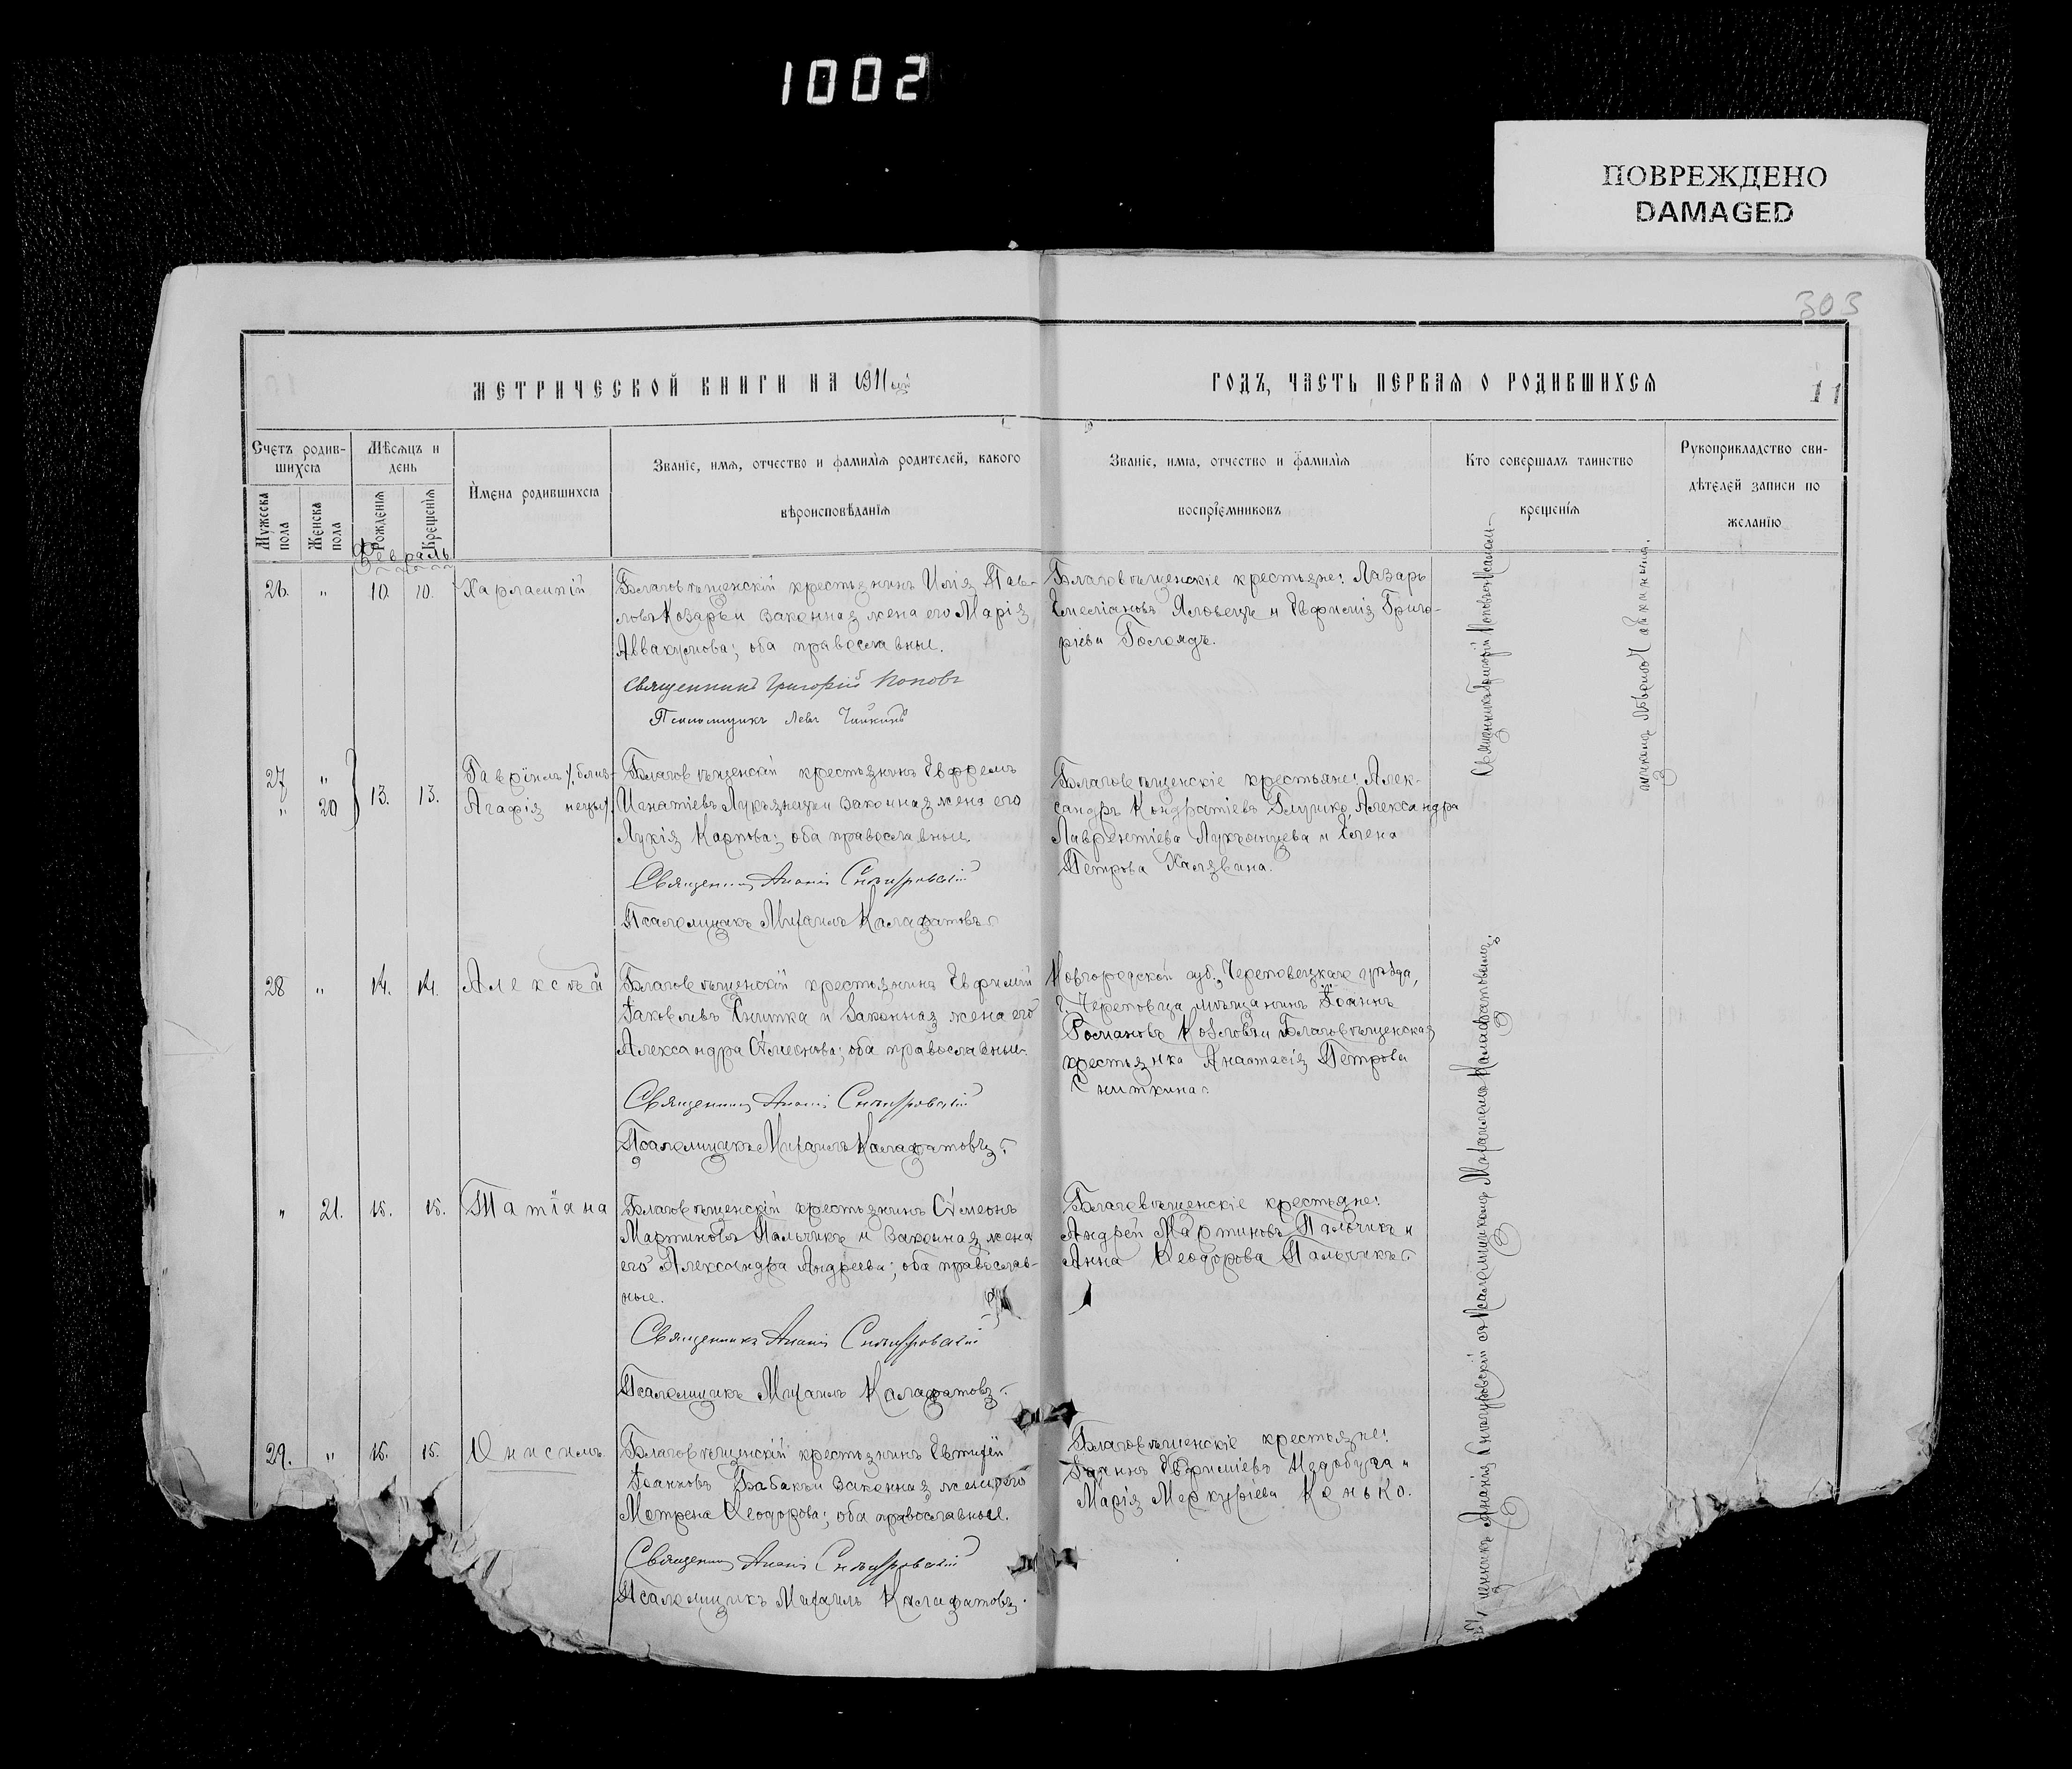 1002
ПОВРЕЖДЕНО
DAMAGED
303
МЕТРИЧЕСКОЙ КНИГИ НА 1911 ый
ГОДЪ, ЧАСТЬ ПЕРВАЯ О РОДИВШИХСЯ
11
Счетъ родив-
шихсѧ
Мужеска пола
Женска пола
Мѣсяцъ и
день
Рожденія
Крещенія
Имена родившихсѧ
Званіе, имя, отчество и фамилія родителей, какого
вѣроисповѣданія
Званіе, имя, отчество и фамилія
воспріемниковъ
Кто совершалъ таинство
крещенія
Рукоприкладство сви-
дѣтелей записи по
желанію
Февраль
26. " 10. 10. Харлампій
Благовѣщенскій крестьянинъ Илія Пав-
ловъ Козарь и законная жена его Марія
Аввакумова; оба православные.
Священникъ Григорій Поповъ
Псаломщикъ Левъ Чайкинъ
Благовѣщенскіе крестьяне: Лазарь
Емеліановъ Яловецъ и Евфимія Григо-
ріева
27 "
" 20
13. 13.
Гавріилъ /близ-
Агафія нецы/.
Благовѣщенскій крестьянинъ Евфремъ
Игнатіевъ и законная жена его
Лукія Карпова; оба православные.
Священникъ Ананія Снѣгуровскій
Псаломщикъ Михаилъ Калафатовъ
Благовѣщенскіе крестьяне: Алек-
сандръ Кондратіевъ Глушко, Александра
Лаврентіева и Елена
Петрова Халявина.
28 " 14. 14. Алексѣй
Благовѣщенскій крестьянинъ Евфимій
Іаковлевъ Снитка и законная жена его
Александра Симеонова; оба православные.
Священникъ Ананія Снѣгуровскій
Псаломщикъ Михаилъ Калафатовъ.
Новгородской губ., Череповецкаго уѣзда,
г. Череповца мѣщанинъ Іоаннъ
Романовъ Козловъ и Благовѣщенская
крестьянка Анастасія Петрова
Сниткина.
" 21. 15. 15. Татіана
Благовѣщенскій крестьянинъ Симеонъ
Мартиновъ Пальчикъ и законная жена
его Александра Андреева; оба православ-
ные.
Священникъ Ананія Снѣгуровскій
Псаломщикъ Михаилъ Калафатовъ.
Благовѣщенскіе крестьяне:
Андрей Мартиновъ Пальчикъ и
Анна Ѳеодорова Пальчикъ
29. " 15. 15. Онисимъ
Благовѣщенскій крестьянинъ Евтихій
Іоанновъ Бабакъ и законная жена его
Матрена Ѳеодорова; оба православные.
Священникъ Ананія Снѣгуровскій
Псаломщикъ Михаилъ Калафатовъ.
Благовѣщенскіе крестьяне:
Іоаннъ Евфиміевъ и
Марія Меркуріева Конько.
Священникъ Григорій Поповъ съ Псалом-
щикомъ Львомъ Чайкинымъ.
Священникъ Ананія Снѣгуровскій съ Псаломщикомъ Михаиломъ Калафатовымъ.